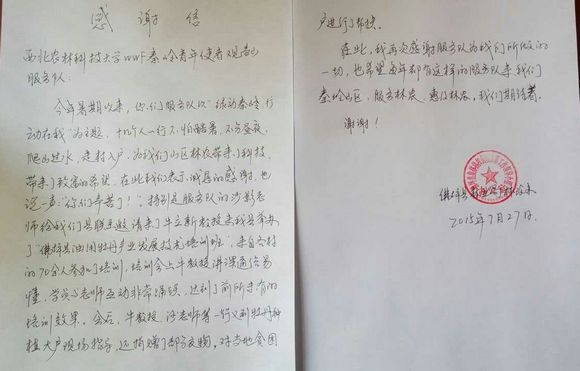 感谢信
西北农林科技大学WWF秦岭青年使者观音山
服务队:
今年暑期以来,你们服务队以"绿动秦岭,行
动在我"为主题,十几个人一行不怕酷暑,不分昼夜,
爬山过水,走村入户,为我们山区林农带来了科技,
带来了致富的希望。在此我们表示诚恳的感谢,也
说一声:"你们辛苦了!",特别是服务队的涉影老
师给我们县联系邀请来了牛立新教授来我县举办
了"佛坪县油用牡丹产业发展技术培训班",来自各村
的70余人参加了培训,培训会上牛教授讲课通俗易
懂,学员与老师互动非常踊跃,达到了前所未有的
培训效果。会后,牛教授、涉老师等一行又到牡丹种
植大户现场指导,还捐赠了部分衣物,对当地贫困
户进行了帮扶。
在此,我再次感谢服务队为我们所做的
一切,也希望每年都有这样的服务队来我们
秦岭山区,服务林农、惠及林农,我们期待着。
谢谢!
佛坪县
2015年7月27日